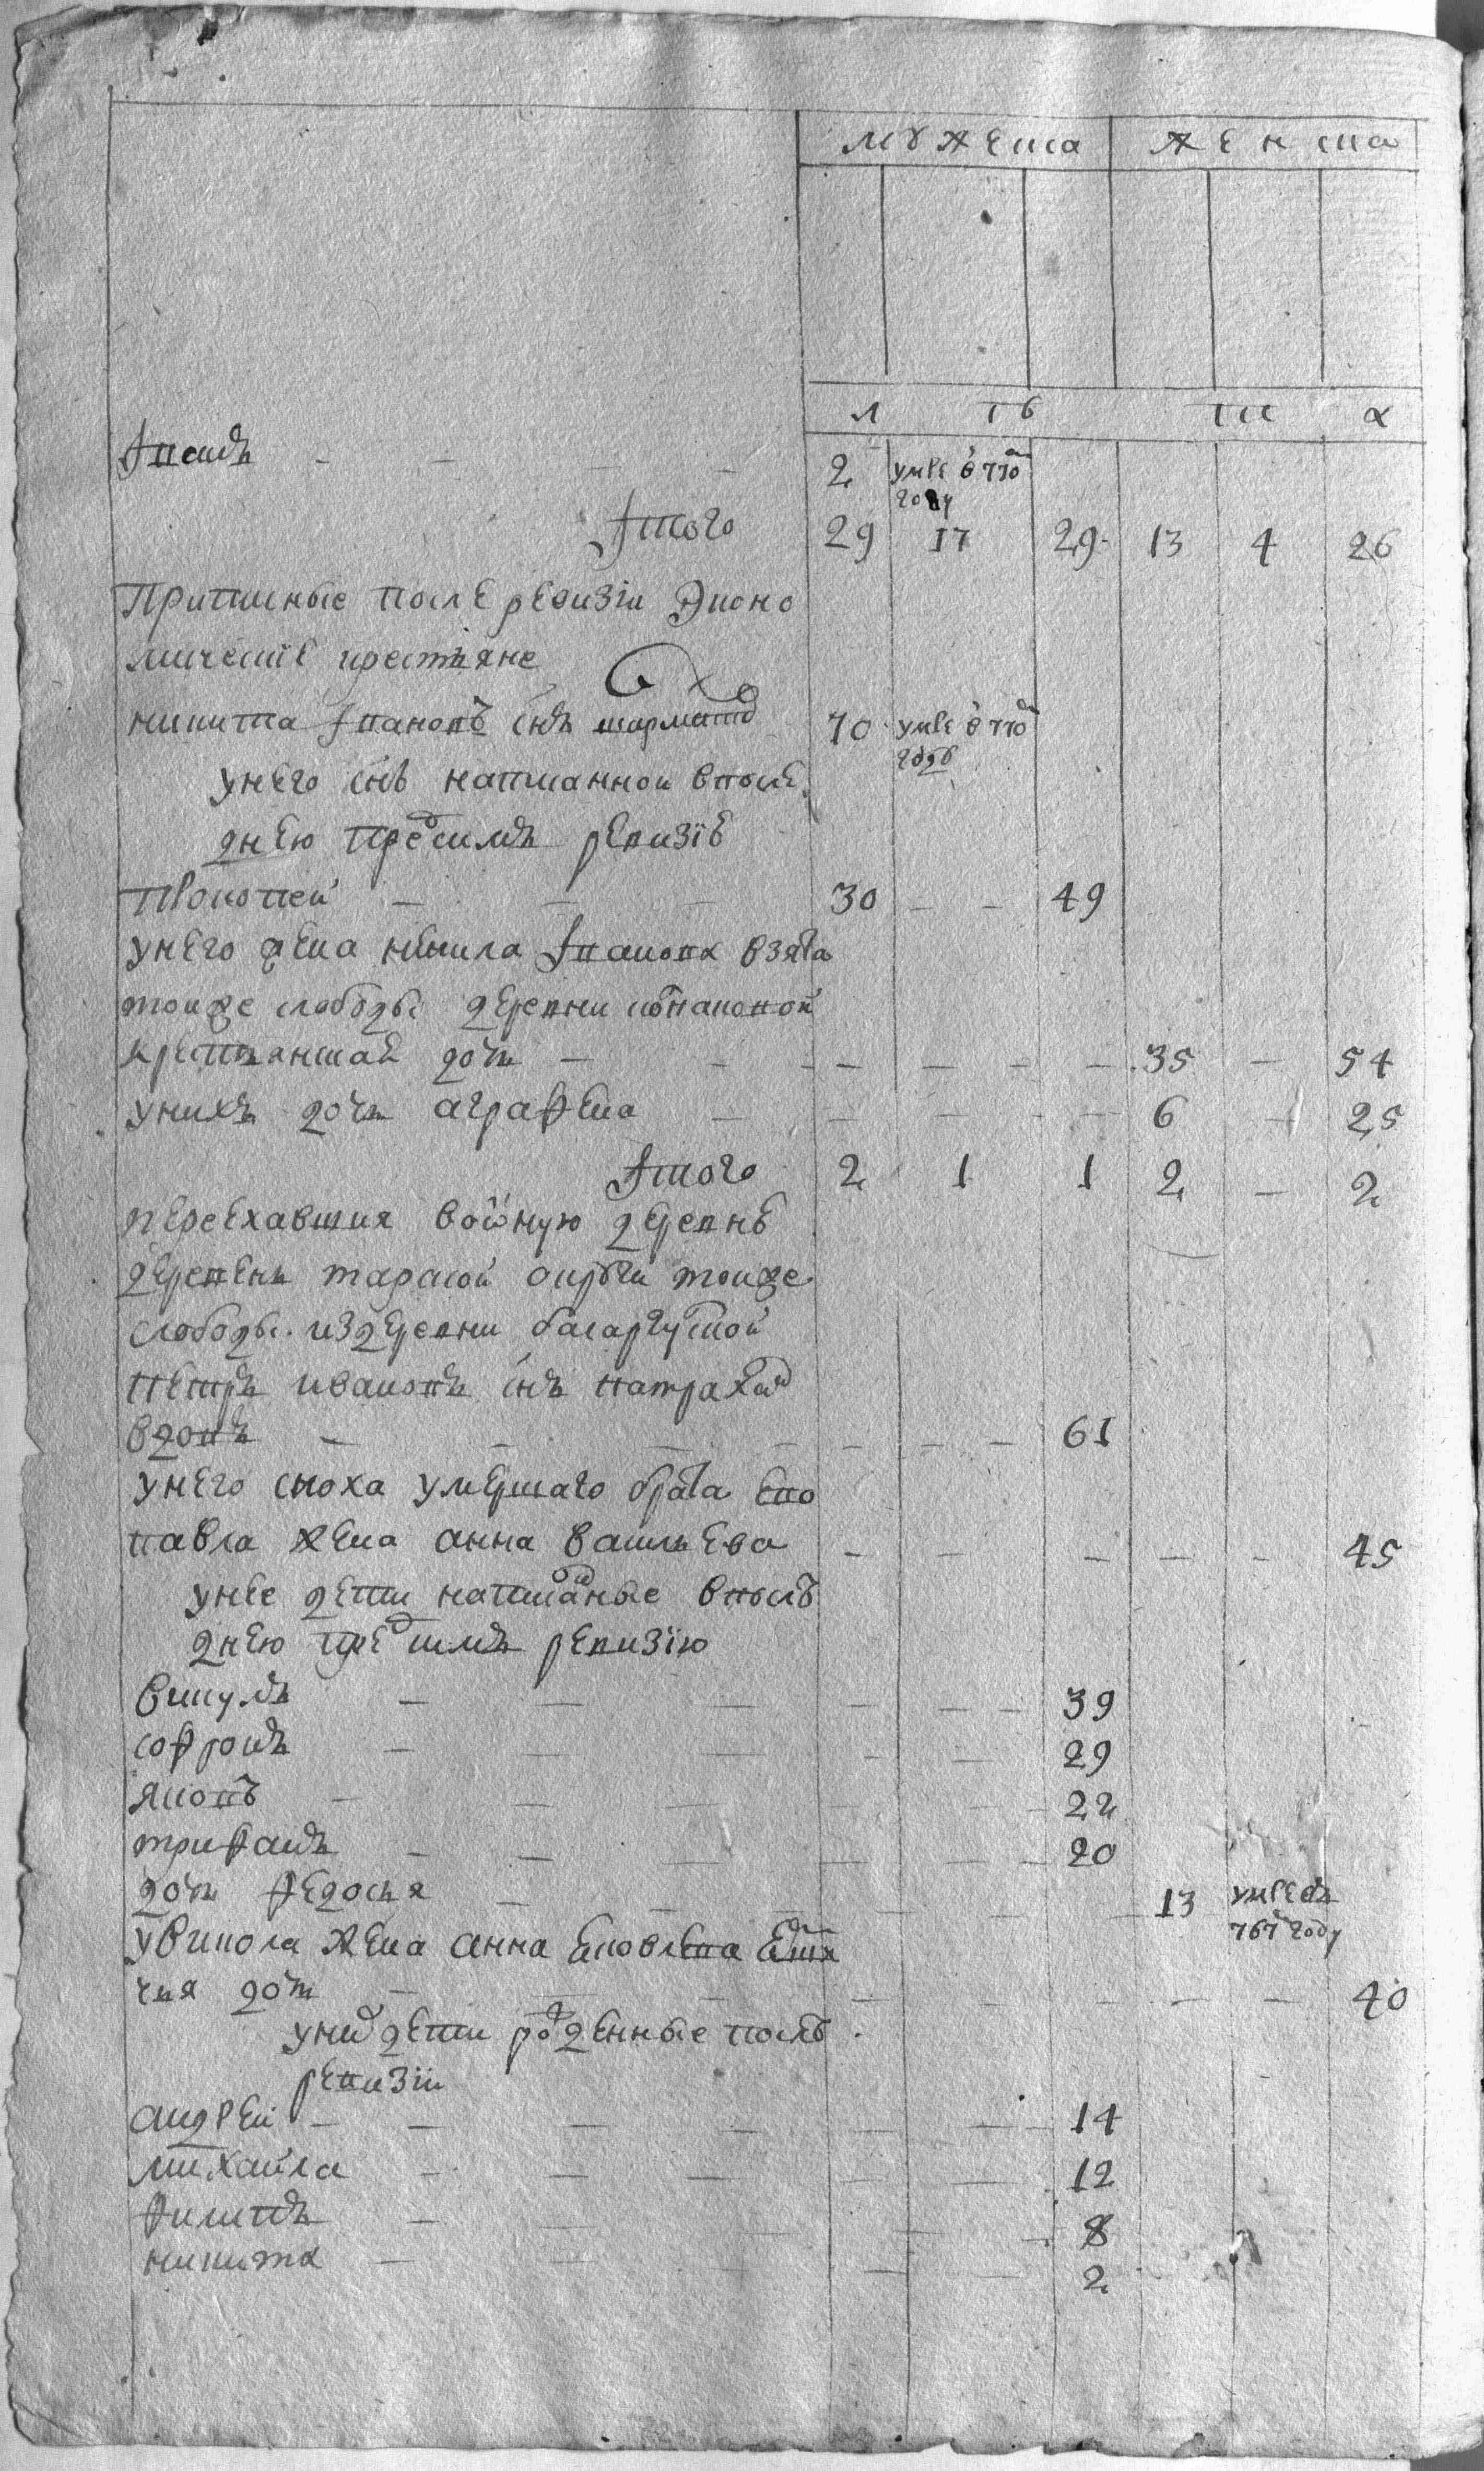 мужеска женска
лѣта
Iванъ 2 умре в 770
году
Iтого 29 17 29 13 4 26
Приписные после ревизiи Эконо
мическiе крестьяне
никита Iвановъ снъ 70 умре в 770
годѣ
у него снъ написанной в после
днею пред симъ ревизiѣ
Прокопей 30 49
у него жена ненила Iванова взята
тоиже слободы деревни
крестьянская дочь 35 54
у нихъ дочь аграфена 6 25
Iтого 2 1 1 2 2
переехавшия в оную деревнѣ
деревень тоиже
слободы из деревни
Петръ ивановъ снъ
вдовъ 61
у него сноха умершаго брата ево
павла жена анна васильева 45
у нее дети написанные в послѣ
днею пред симъ ревизiю
викулъ 39
софронъ 29
яковъ 22
трифанъ 20
дочь федосья 13 умре въ
767 году
у викола жена анна
чья дочь 40
у них дети рожденные послѣ
ревизiи
андреи 14
михаила 12
филипъ 8
никита 2